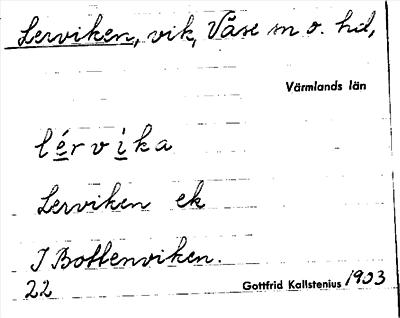 Lerviken, vik, Väse sn o. hd,
Värmlands län
lérvika
Lerviken ek
I Bottenviken.
22
Gottfrid Kallstenius 1903